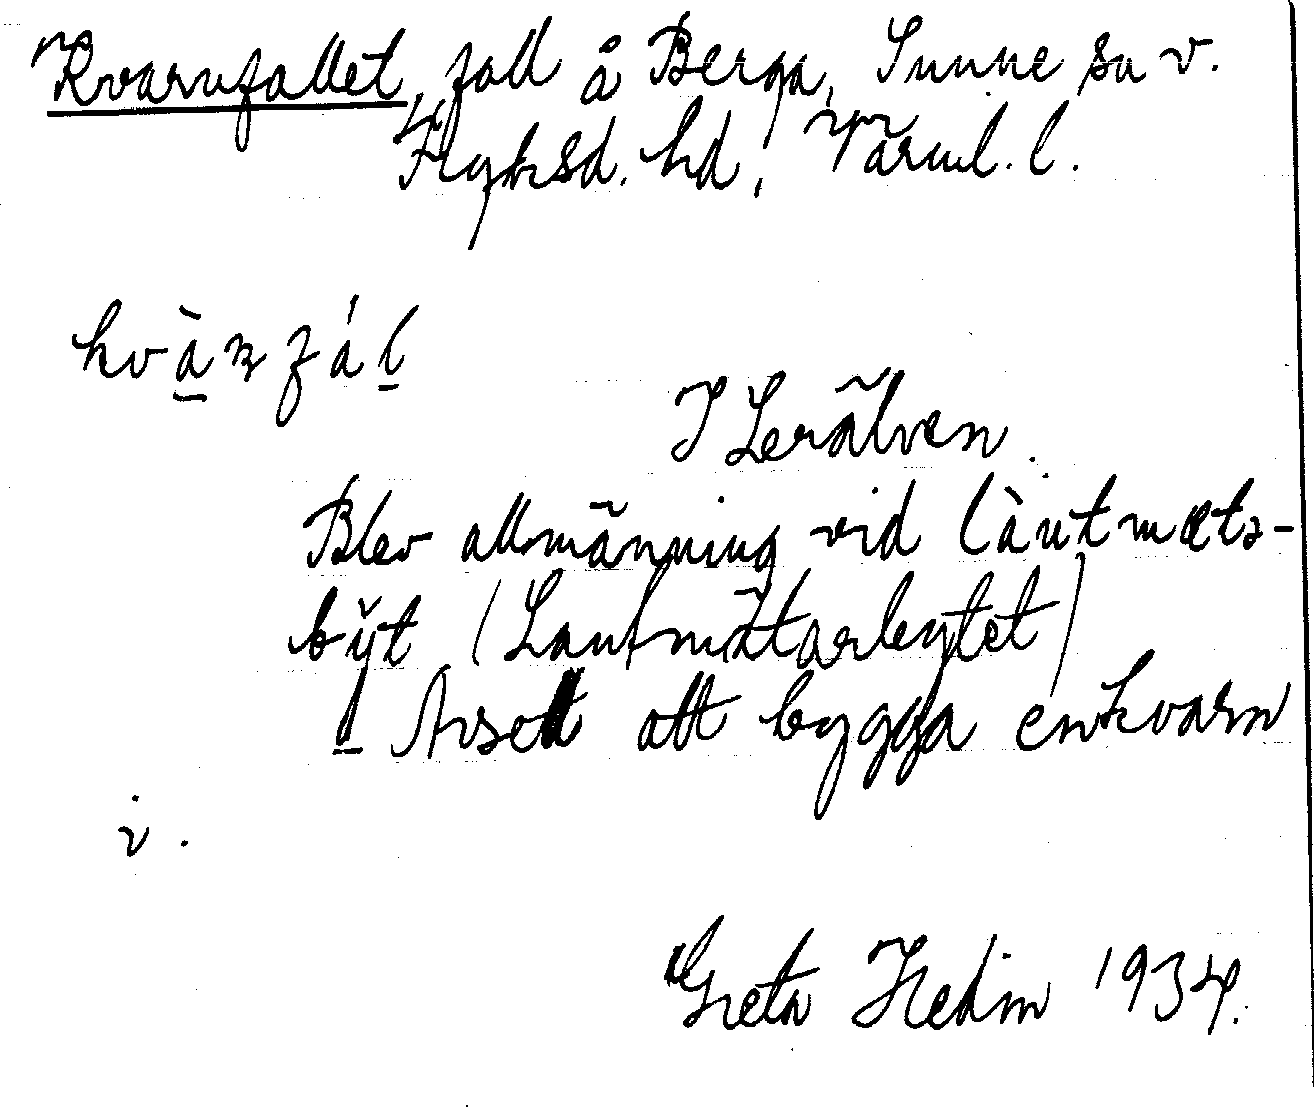 Kvarnfallet, fall å Berga, Sunne sn v.
Fryksd. hd, Värml. l.
I Lerälven.
Blev allmänning vid làntmæts-
být (Lantmätarbytet)
Avsett att bygga en kvarn
i.
Greta Hedin 1934.